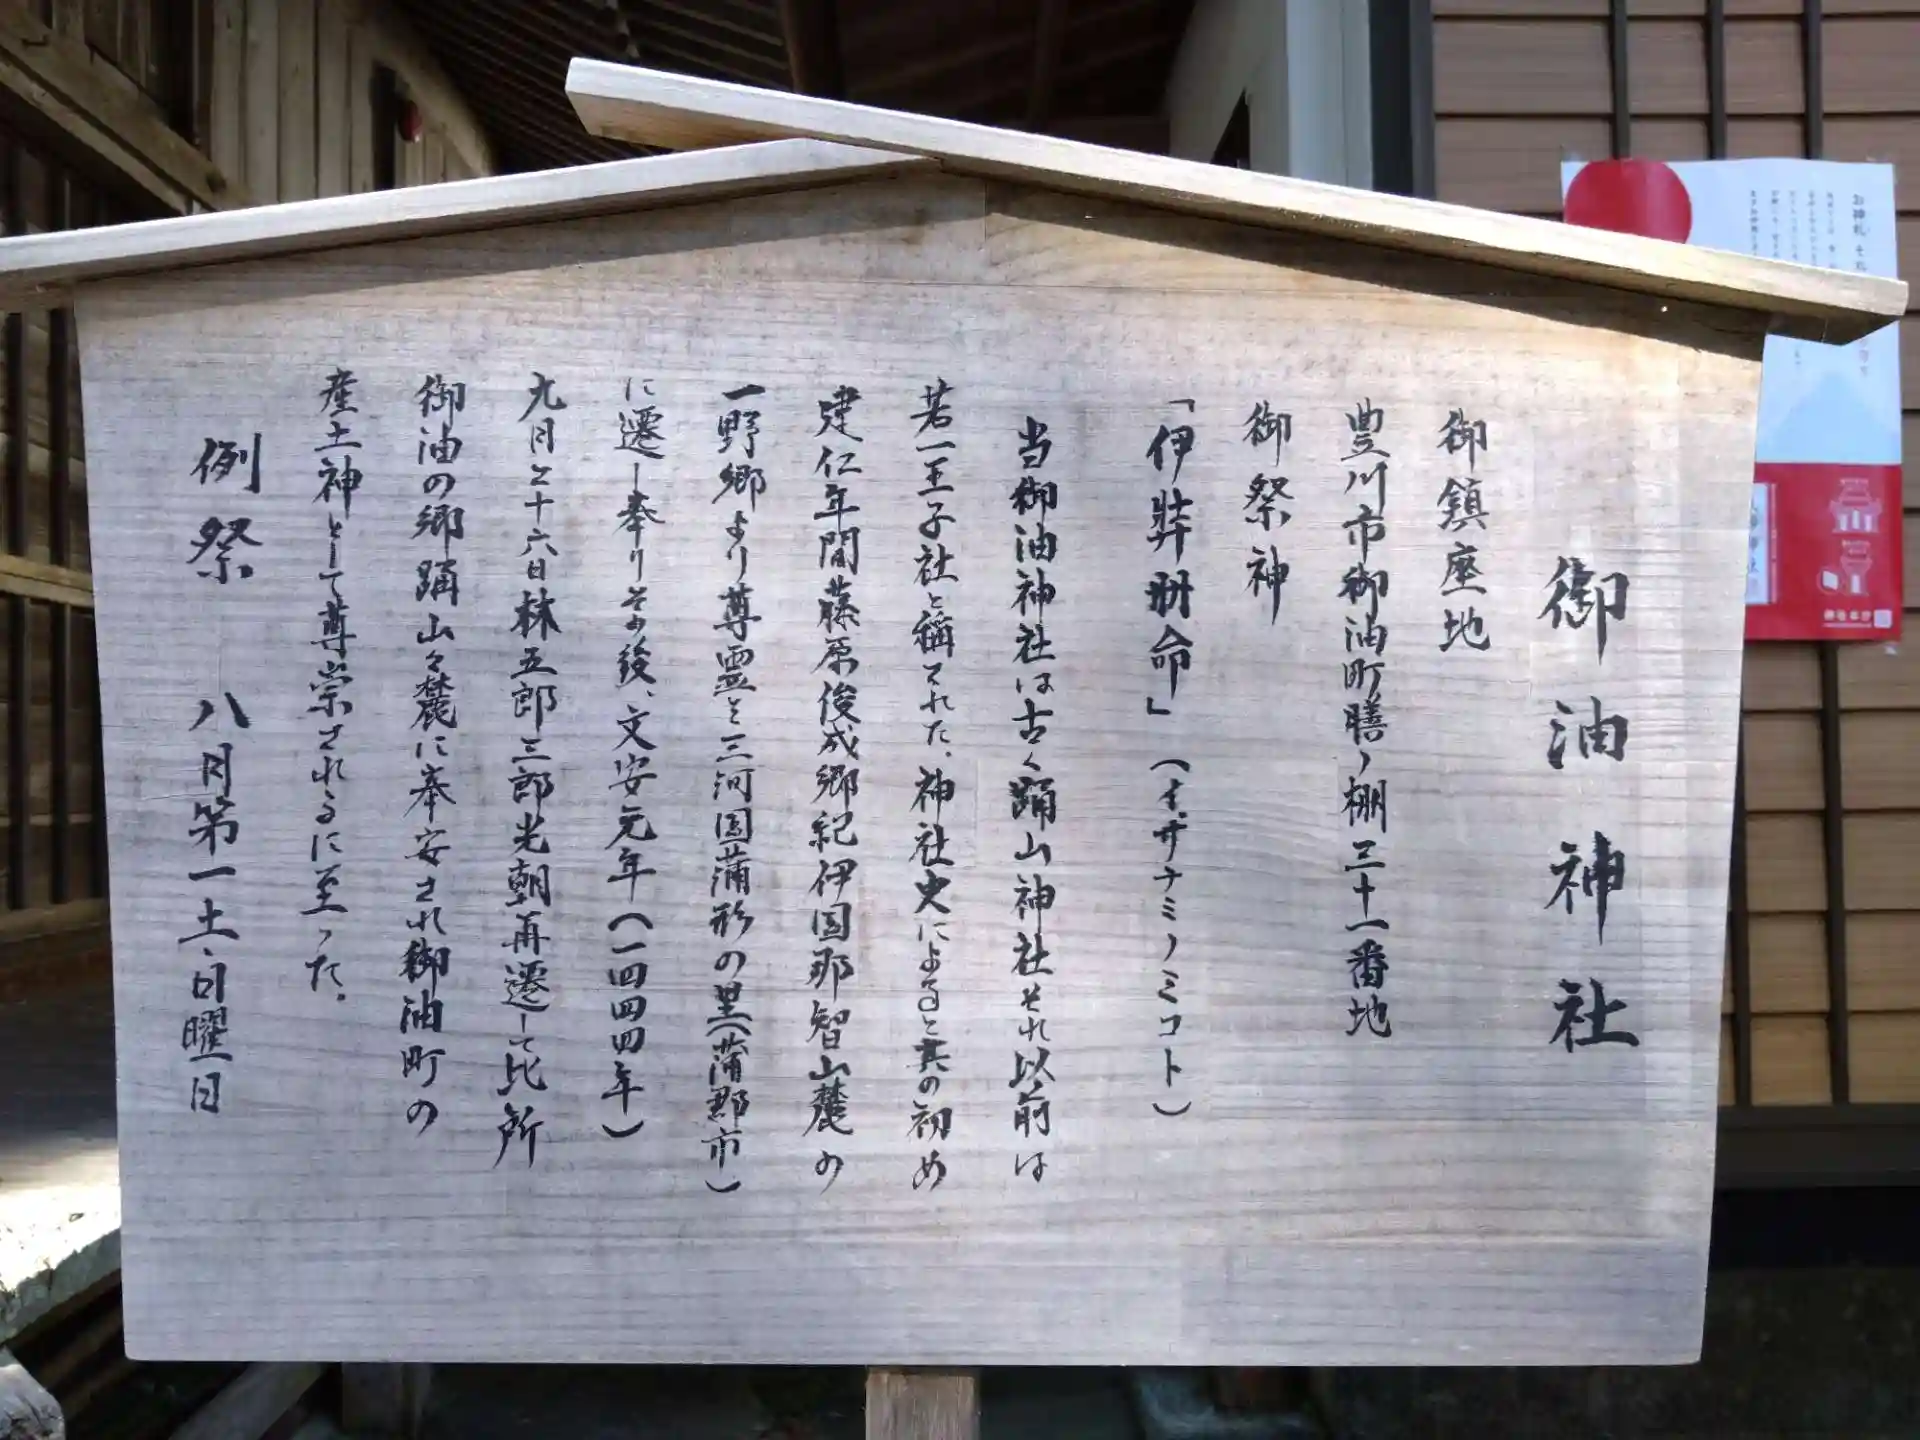 御油神社
御鎮座地
豊川市御油町膳ノ棚三十一番地
御祭神
「伊弉冊命」（イザナミノミコト）
当御油神社は古く踊山神社それ以前は
若一王子社と稱された。神社史によると其の初め
建仁年間藤原俊成郷紀伊国那智山麓の
一野郷より尊霊を三河国蒲形の里（蒲郡市）
に遷し奉りその後、文安元年（一四四四年）
九月二十六日林五郎三郎光朝再遷して比所
御油の郷踊山々麓に奉安され御油町の
産土神として尊崇されるに至った。
例祭 八月第一土、日曜日
お神札